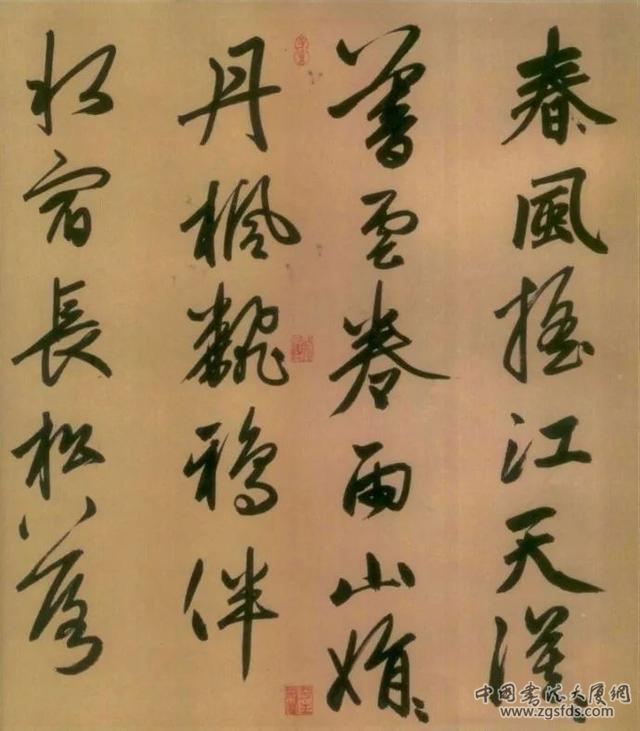 春風搖江天漠〻
暮雲卷雨山娟〻
丹楓飜鴉伴
水宿長松落
中國書法大厦網
www.zgsfds.com